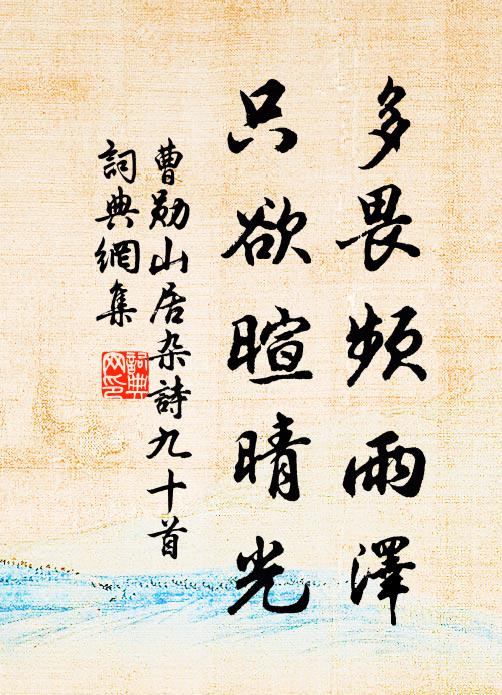 多畏頻雨澤
只欲暄晴光
曹勛山居杂詩九十首
詞典網集
詞典网印